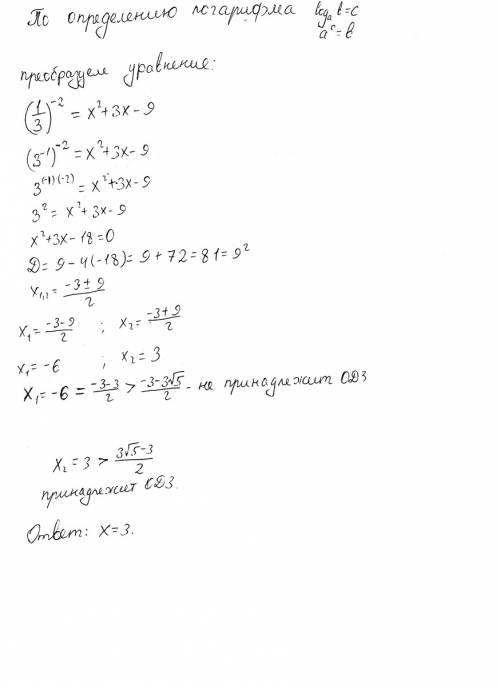 По определению логарифма logₐ b=c
aᶜ=b
преобразуем уравнение:
(1/3)⁻² = x²+3x-9
(3⁻¹)⁻² = x²+3x-9
3⁽⁻¹⁾⁽⁻²⁾ = x²+3x-9
3² = x²+3x-9
x²+3x-18=0
D= 9-4(-18)= 9+72=81=9²
x₁,₂= (-3±9)/2
x₁= (-3-9)/2 ; x₂= (-3+9)/2
x₁= -6 ; x₂= 3
x₁= -6 = (-3-3)/2 > (-3-3√5)/2 - не принадлежит ОДЗ
x₂ = 3 > (3√5-3)/2
принадлежит ОДЗ.
Ответ: x=3.